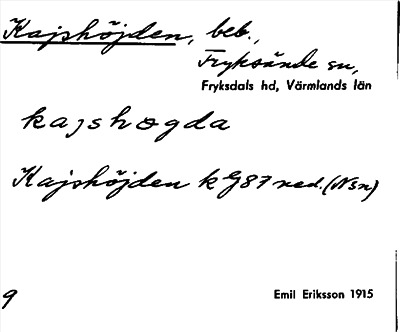 Kajshöjden, beb.,
Fryksände sn,
Fryksdals hd, Värmlands län
kajshøgda
Kajshöjden k G87 ned. (Nsn)
9
Emil Eriksson 1915